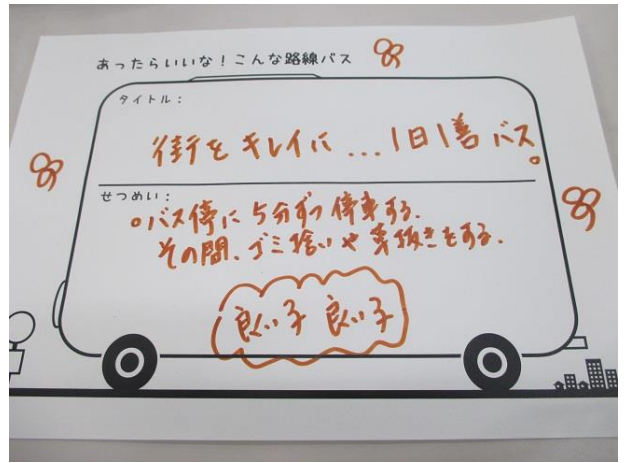 あったらいいな！こんな路線バス
タイトル：
街をキレイに...1日1善バス。
せつめい：
○バス停に5分ずつ停車する.
その間、ゴミ捨いや草抜きをする.
良い子 良い子